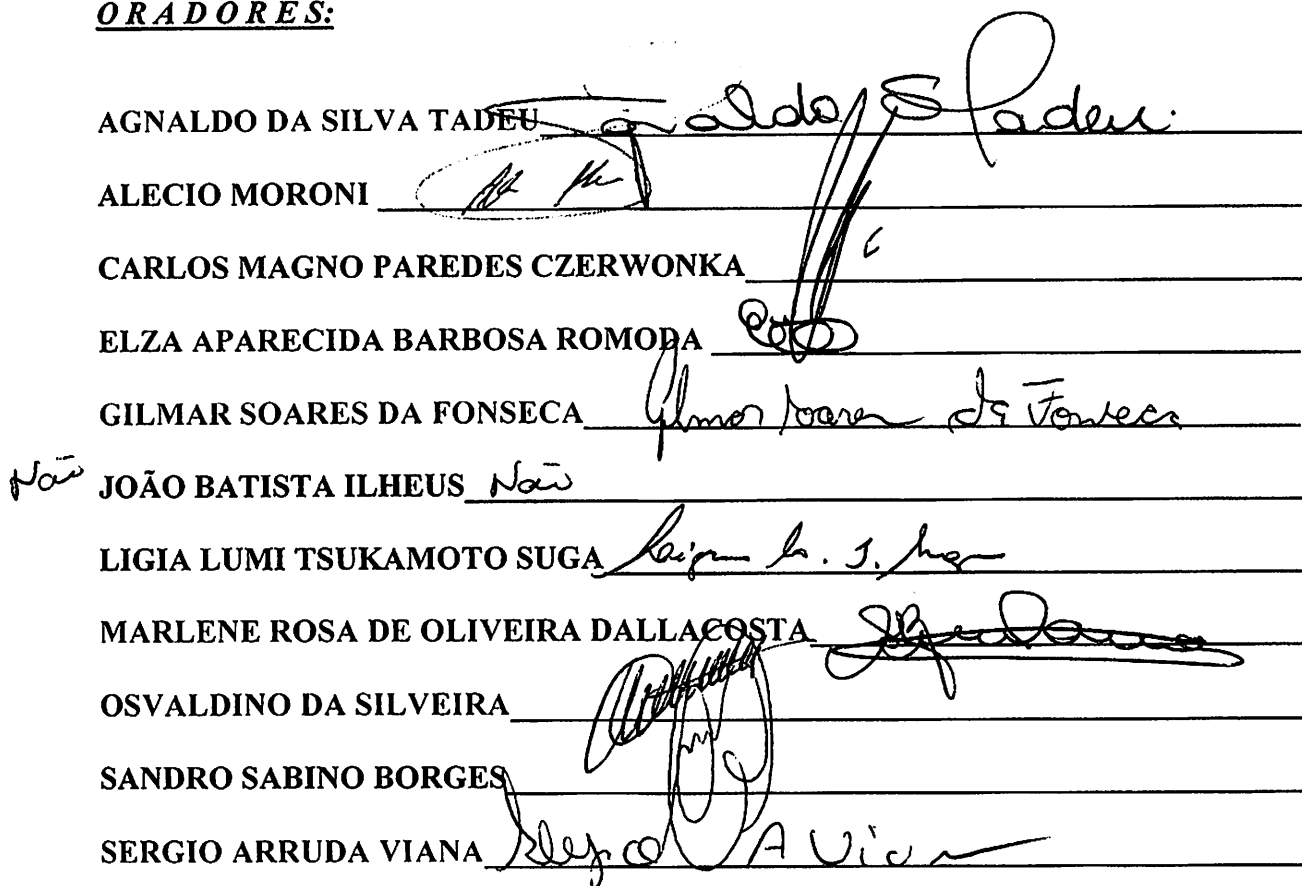 ORADORES:
AGNALDO DA SILVA TADEU Agnaldo S Tadeu
ALECIO MORONI
CARLOS MAGNO PAREDES CZERWONKA
ELZA APARECIDA BARBOSA ROMODA
GILMAR SOARES DA FONSECA Gilmar Soares da Fonseca
Não JOÃO BATISTA ILHEUS Não
LIGIA LUMI TSUKAMOTO SUGA
MARLENE ROSA DE OLIVEIRA DALLACOSTA
OSVALDINO DA SILVEIRA
SANDRO SABINO BORGES
SERGIO ARRUDA VIANA